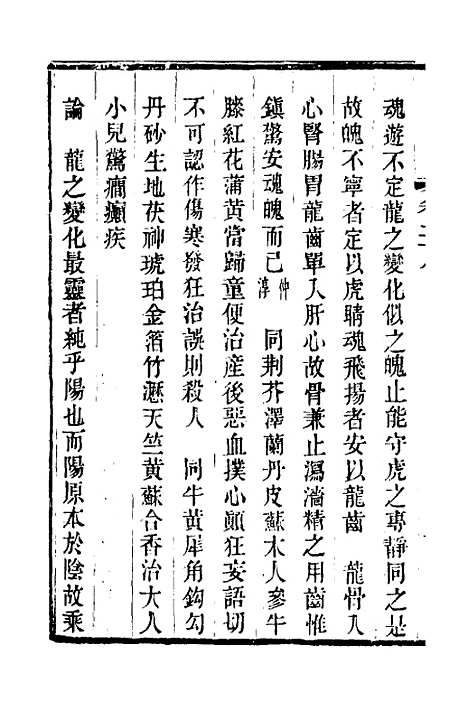 魂遊不定龍之變化似之魄止能守虎之專靜同之是
故魄不寧者定以虎睛魂飛揚者安以龍齒　龍骨入
心腎腸胃龍齒單入肝心故骨兼止瀉濇精之用齒惟
鎮驚安魂魄而已仲淳　同荆芥澤蘭丹皮蘇木人參牛
膝紅花蒲黃當歸童便治産後惡血撲心顚狂妄語切
不可認作傷寒發狂治誤則殺人　同牛黃犀角鈎勾
丹砂生地茯神琥珀金箔竹瀝天竺黃蘇合香治大人
小兒驚癎癲疾
論　龍之變化最靈者純乎陽也而陽原本於陰故乘